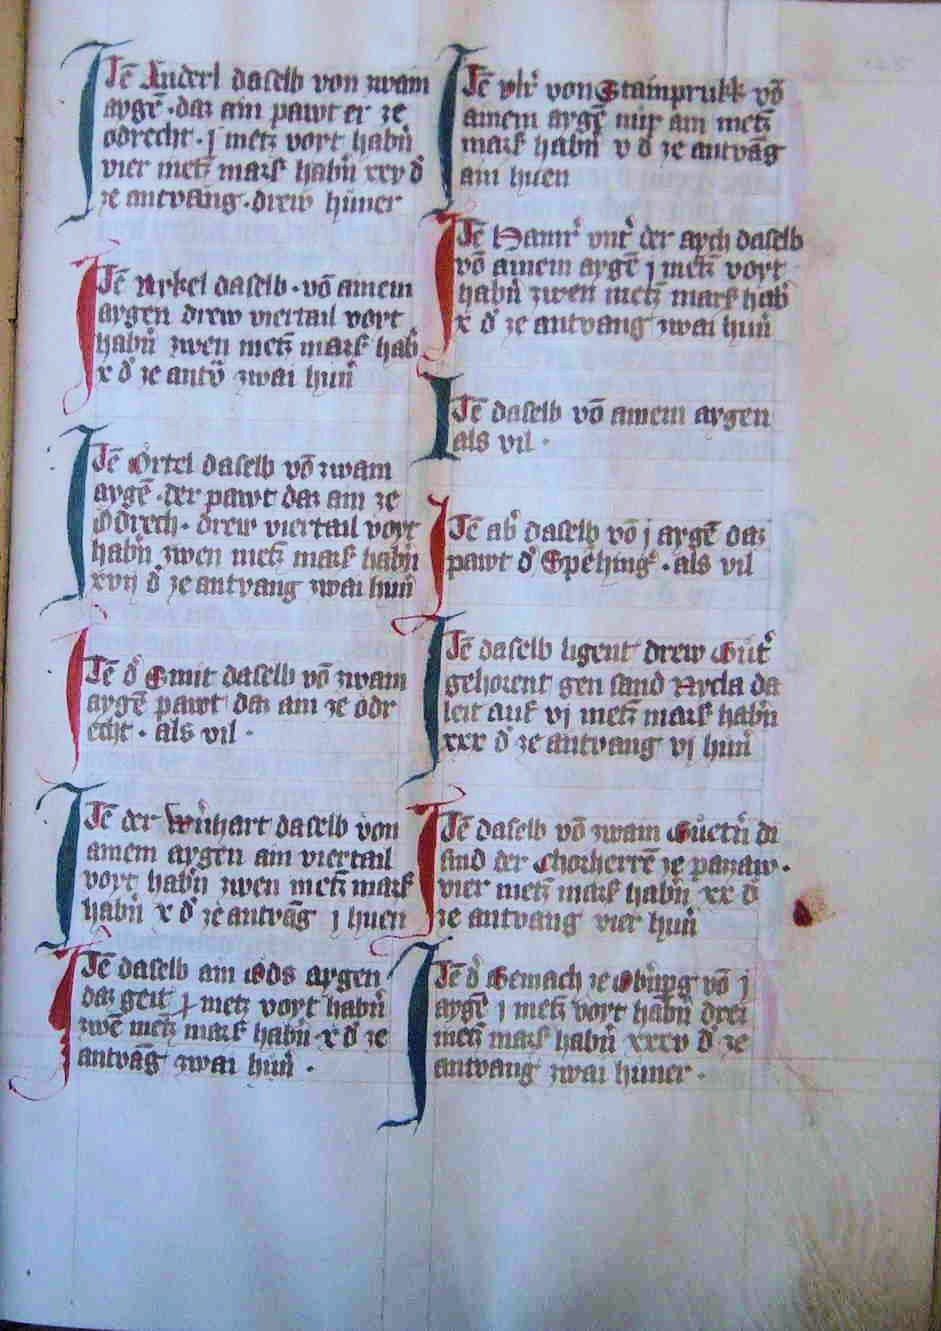 Jtē Anderl daselb von zwain
aygē · daz ain pawt er ze
odrecht · j metz voyt habn̄
vier metz mark habn̄ xxv d̄
ze antvang · drew hůner
Jtē Nykel daselb · vō ainem
aygen drew viertail voyt
habn̄ zwen metz mark hab̄
x d̄ ze antv̄ zwai hun̄
Jtē Örtel daselb vō zwain
aygē · der pawt daz ain ze
odrech · drew viertail voyt
habn̄ zwen metz mark habn̄
xvij d̄ ze antvang zwai hun̄
Jtē d̄ Smit daselb vō zwain
aygē pawt daz ain ze odr
echt · als vil ·
Jtē der daselb von
ainem aygen ain viertail
voyt habn̄ zwen metz mark
habn̄ x d̄ ze antvāg j huen
Jtē daselb ain öds aygen
daz geit metz voyt habn̄
zwē metz mark habn̄ x d̄ ze
antvāg zwai hun̄ ·
Jtē vlr̄ von Stainprukk vō
ainem aygē nur ain metz
mark habn̄ v d̄ ze antvāg
ain huen
Jtē Hainr̄ vnt̄ der aych daselb
vō ainem aygē j metz voyt
habn̄ zwen metz mark hab̄
x d̄ ze antvang zwai hun̄
Jtē daselb vō ainem aygen
als vil ·
Jtē ab̄ daselb vō j aygē daz
pawt d̄ Spēhinḡ · als vil
Jtē daselb ligent drew Gůt̄
gehorent gen sand Nycla da
leit auf vj metz mark habn̄
xxx d̄ ze antvang vj hun̄
Jtē daselb vō zwain Gůetn̄ di
sind der Chorherrē ze pazzaw ·
vier metz mark habn̄ xx d̄
ze antvang vier hun̄
Jtē d̄ Gemach ze vō j
aygē j metz voyt habn̄ drei
metz mark habn̄ xxxv d̄ ze
antvang zwai huner ·